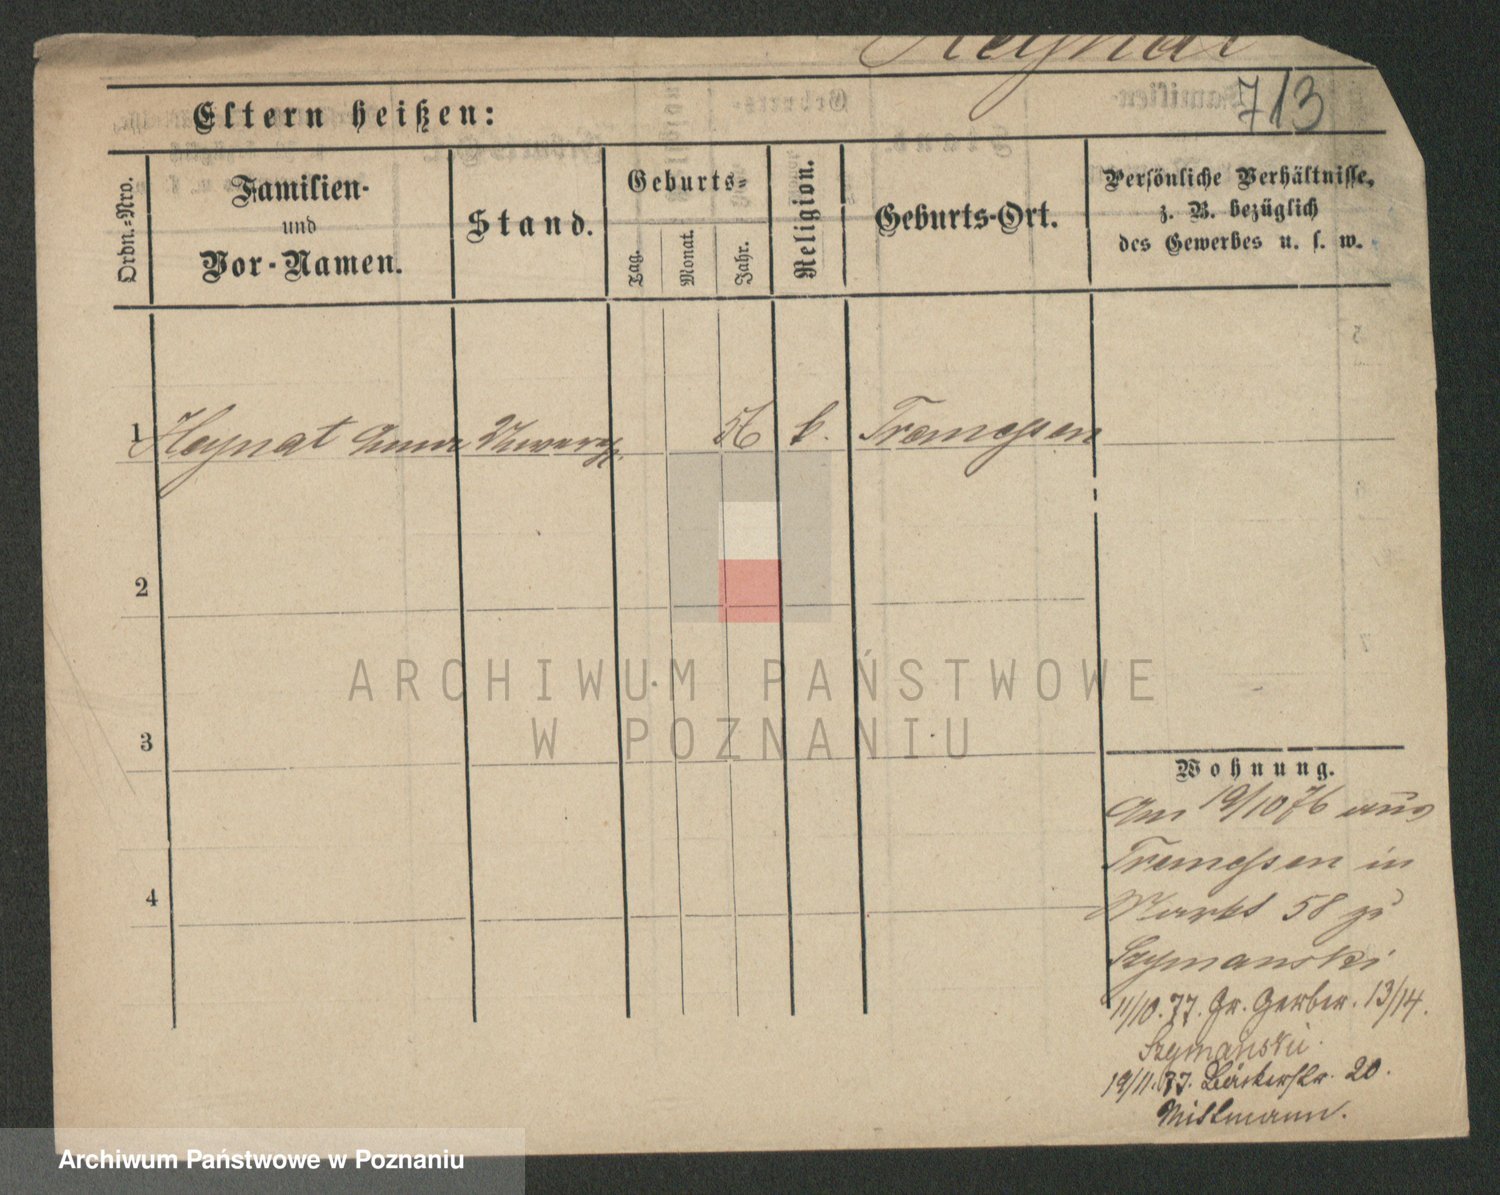 Heynat
713
Eltern heißen:
Ordn.-Nro.
Familien-
und
Vor-Namen.
Stand.
Geburts-
Tag.
Monat.
Jahr.
Religion.
Geburts-Ort.
Persönliche Verhältnisse,
z. B. bezüglich
des Gewerbes u. s. w.
1 Heynat Anna 56 k. Tremessen
2
3
4
Wohnung.
Am 19/10 76 aus
Tremessen in
Markt 58 zu
Szymanski
11/10.77. Gr. Gerber. 13/14.
Szymański.
19/11.77. Bäckerstr. 20.
Mittmann.
ARCHIWUM PAŃSTWOWE
W POZNANIU
Archiwum Państwowe w Poznaniu